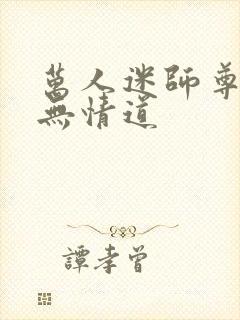 萬人迷師尊
無情道
譚孝曾